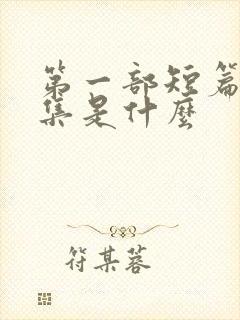 第一部短篇
集是什麼
符某蓉